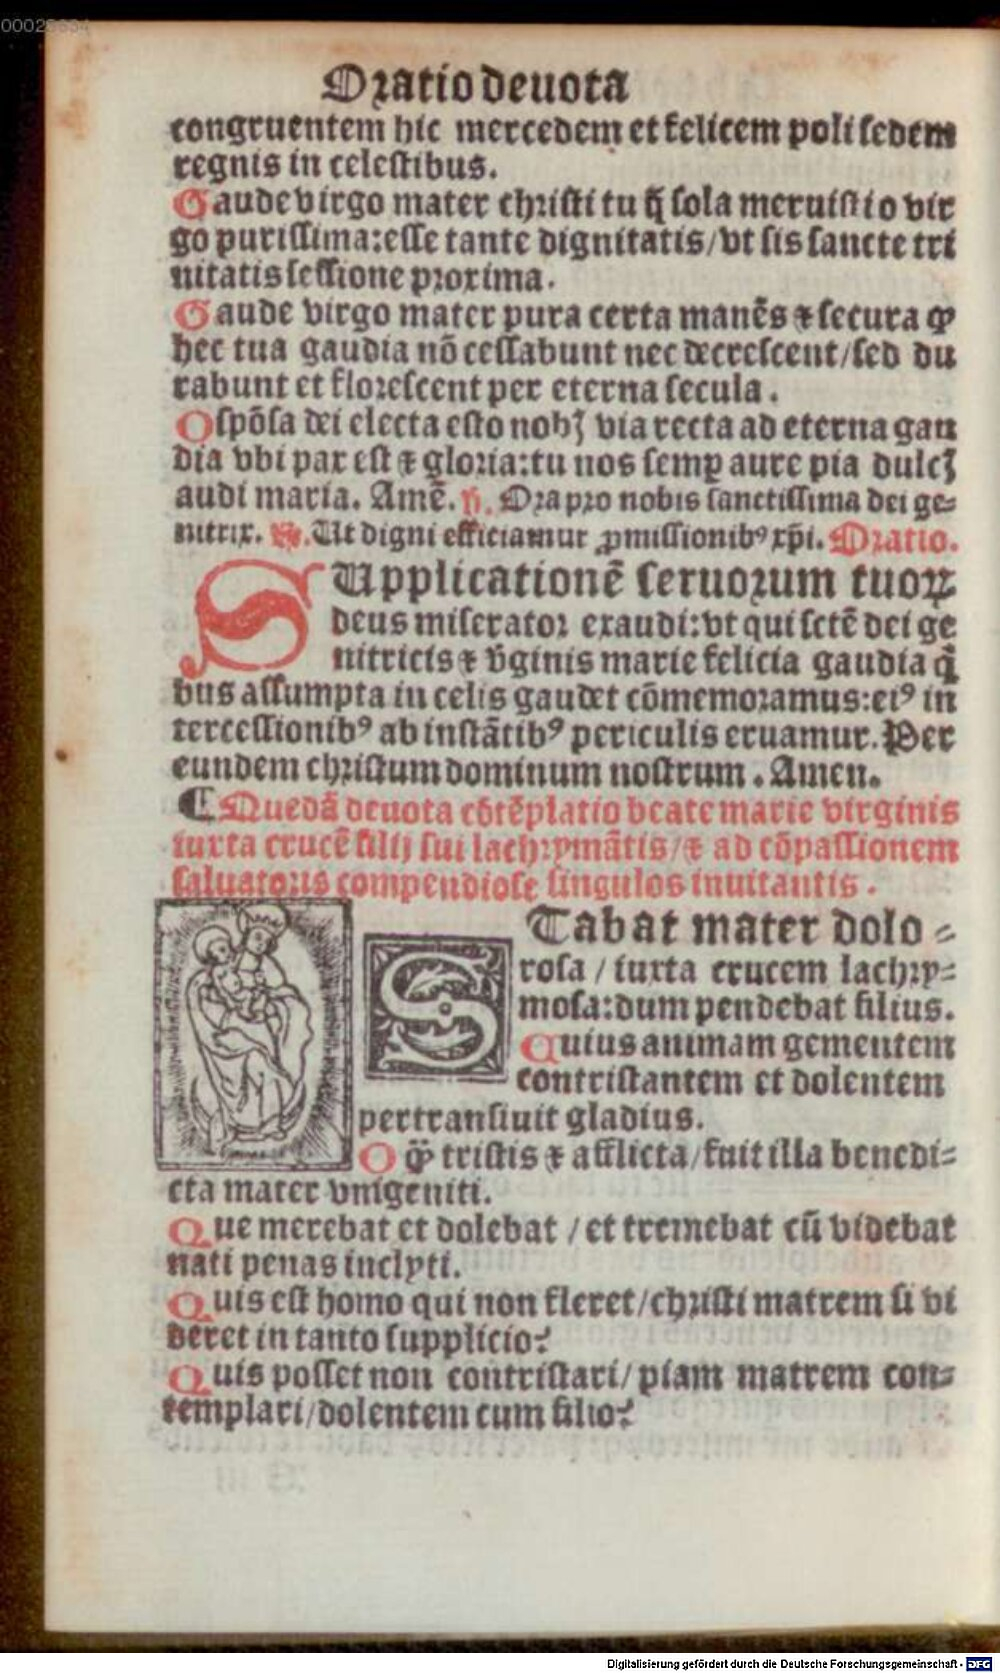 00026634
Oratio deuota
congruentem hic mercedem et felicem poli sedem
regnis in celestibus.
Gaude virgo mater christi tu q̃ sola meruisti o vir
go purissima: esse tante dignitatis/ vt sis sancte tri
nitatis sessione proxima.
Gaude virgo mater pura certa manẽs ⁊ secura ꝙ
hec tua gaudia nõ cessabunt nec decrescent/ sed du
rabunt et florescent per eterna secula.
O spõsa dei electa esto nobꝫ via recta ad eterna gau
dia vbi pax est ⁊ gloria: tu nos semꝑ aure pia dulcꝫ
audi maria. Amẽ. ℣. Ora pro nobis sanctissima dei ge⸗
nitrix. ℟. Ut digni efficiamur ꝓmissionibꝰ xp̃i. Oratio.
SUpplicationẽ seruorum tuoꝝ
deus miserator exaudi: vt qui sctẽ dei ge
nitricis ⁊ v̓ginis marie felicia gaudia q̃
bus assumpta in celis gaudet cõmemoramus: eiꝰ in
tercessionibꝰ ab instãtibꝰ periculis eruamur. Per
eundem christum dominum nostrum. Amen.
¶ Quedã deuota cõtẽplatio beate marie virginis
iuxta crucẽ filij sui lachrymãtis/ ⁊ ad cõpassionem
saluatoris compendiose singulos inuitantis.
STabat mater dolo⸗
rosa / iuxta crucem lachry⸗
mosa: dum pendebat filius.
Cuius animam gementem
contristantem et dolentem
pertransiuit gladius.
O ꝙ̃ tristis ⁊ afflicta/ fuit illa benedi⸗
cta mater vnigeniti.
Que merebat et dolebat / et tremebat cũ videbat
nati penas inclyti.
Quis est homo qui non fleret/ christi matrem si vi
deret in tanto supplicio?
Quis posset non contristari/ piam matrem con⸗
templari/ dolentem cum filio?
Digitalisierung gefördert durch die Deutsche Forschungsgemeinschaft - DFG